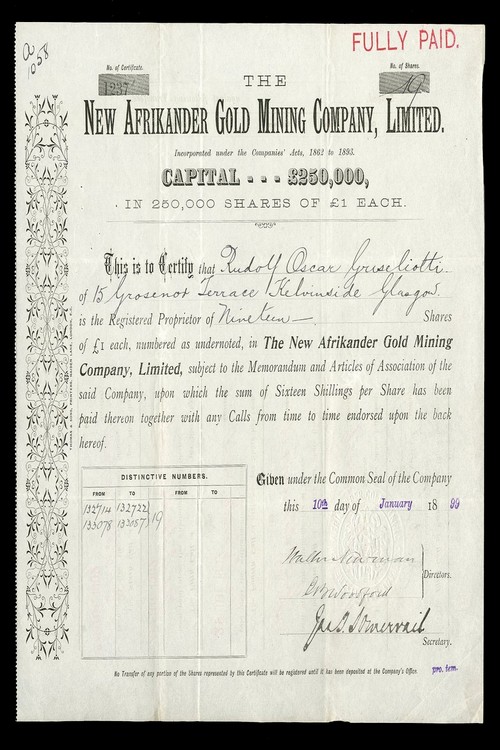 a/1058
FULLY PAID.
No. of Certificate.
1237
No. of Shares.
19
THE
NEW AFRIKANDER GOLD MINING COMPANY, LIMITED.
Incorporated under the Companies' Acts, 1862 to 1893.
CAPITAL - - - £250,000,
IN 250,000 SHARES OF £1 EACH.
This is to Certify that Rudolf Oscar Gruseliotti
of 15 Grosvenor Terrace Kelvinside Glasgow.
is the Registered Proprietor of Nineteen — Shares
of £1 each, numbered as undernoted, in The New Afrikander Gold Mining
Company, Limited, subject to the Memorandum and Articles of Association of the
said Company, upon which the sum of Sixteen Shillings per Share has been
paid thereon together with any Calls from time to time endorsed upon the back
hereof.
DISTINCTIVE NUMBERS.
FROM TO FROM TO
132714 132722
133078 133087 19
Given under the Common Seal of the Company
this 10th day of January 1899
Walter Newman
Woodford
Directors.
Jas. Somervail
Secretary.
pro. tem.
No Transfer of any portion of the Shares represented by this Certificate will be registered until it has been deposited at the Company's Office.